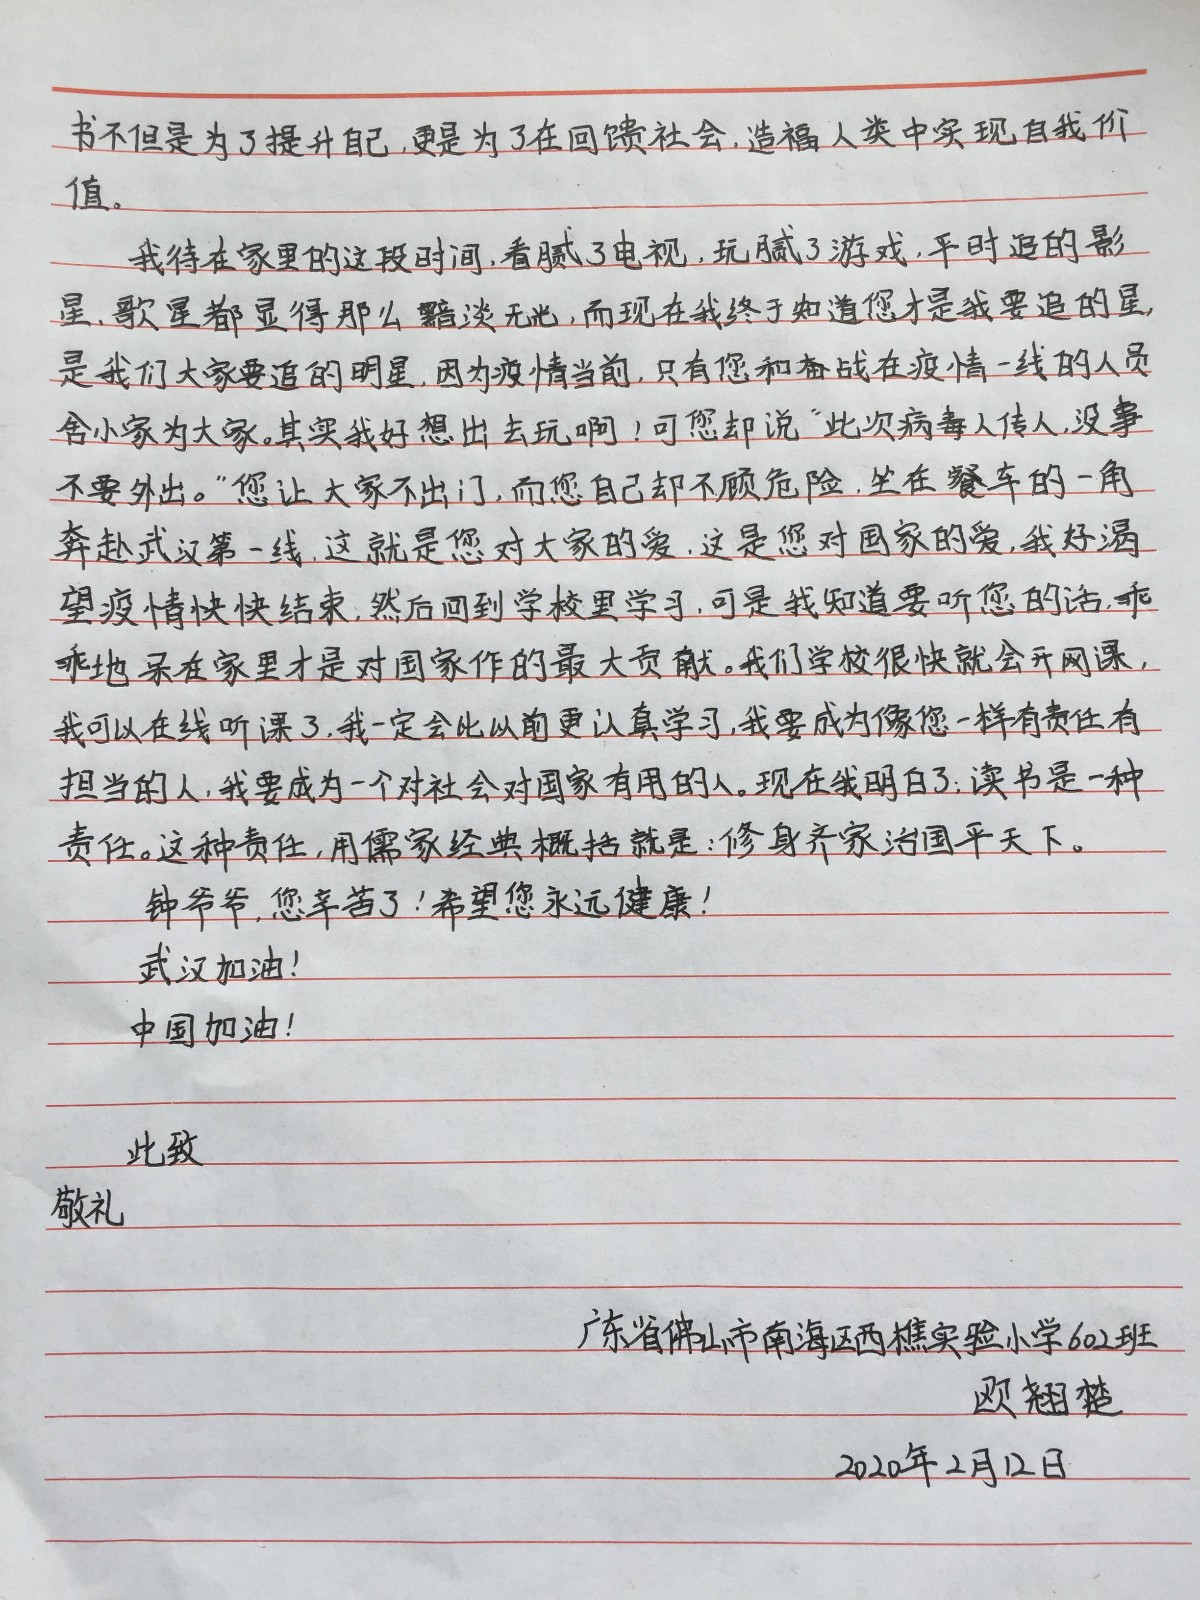 书不但是为了提升自己,更是为了在回馈社会,造福人类中实现自我价
值。
我待在家里的这段时间,看腻了电视,玩腻了游戏,平时追的影
星、歌星都显得那么黯淡无光,而现在我终于知道您才是我要追的星,
是我们大家要追的明星,因为疫情当前,只有您和奋战在疫情一线的人员
舍小家为大家。其实我好想出去玩啊!可您却说“此次病毒人传人,没事
不要外出。”您让大家不出门,而您自己却不顾危险,坐在餐车的一角
奔赴武汉第一线,这就是您对大家的爱,这是您对国家的爱,我好渴
望疫情快快结束,然后回到学校里学习,可是我知道要听您的话,乖
乖地呆在家里才是对国家作的最大贡献。我们学校很快就会开网课,
我可以在线听课了,我一定会比以前更认真学习,我要成为像您一样有责任有
担当的人,我要成为一个对社会对国家有用的人。现在我明白了:读书是一种
责任。这种责任,用儒家经典概括就是:修身齐家治国平天下。
钟爷爷,您辛苦了!希望您永远健康!
武汉加油!
中国加油!
此致
敬礼
广东省佛山市南海区西樵实验小学602班
欧翘楚
2020年2月12日